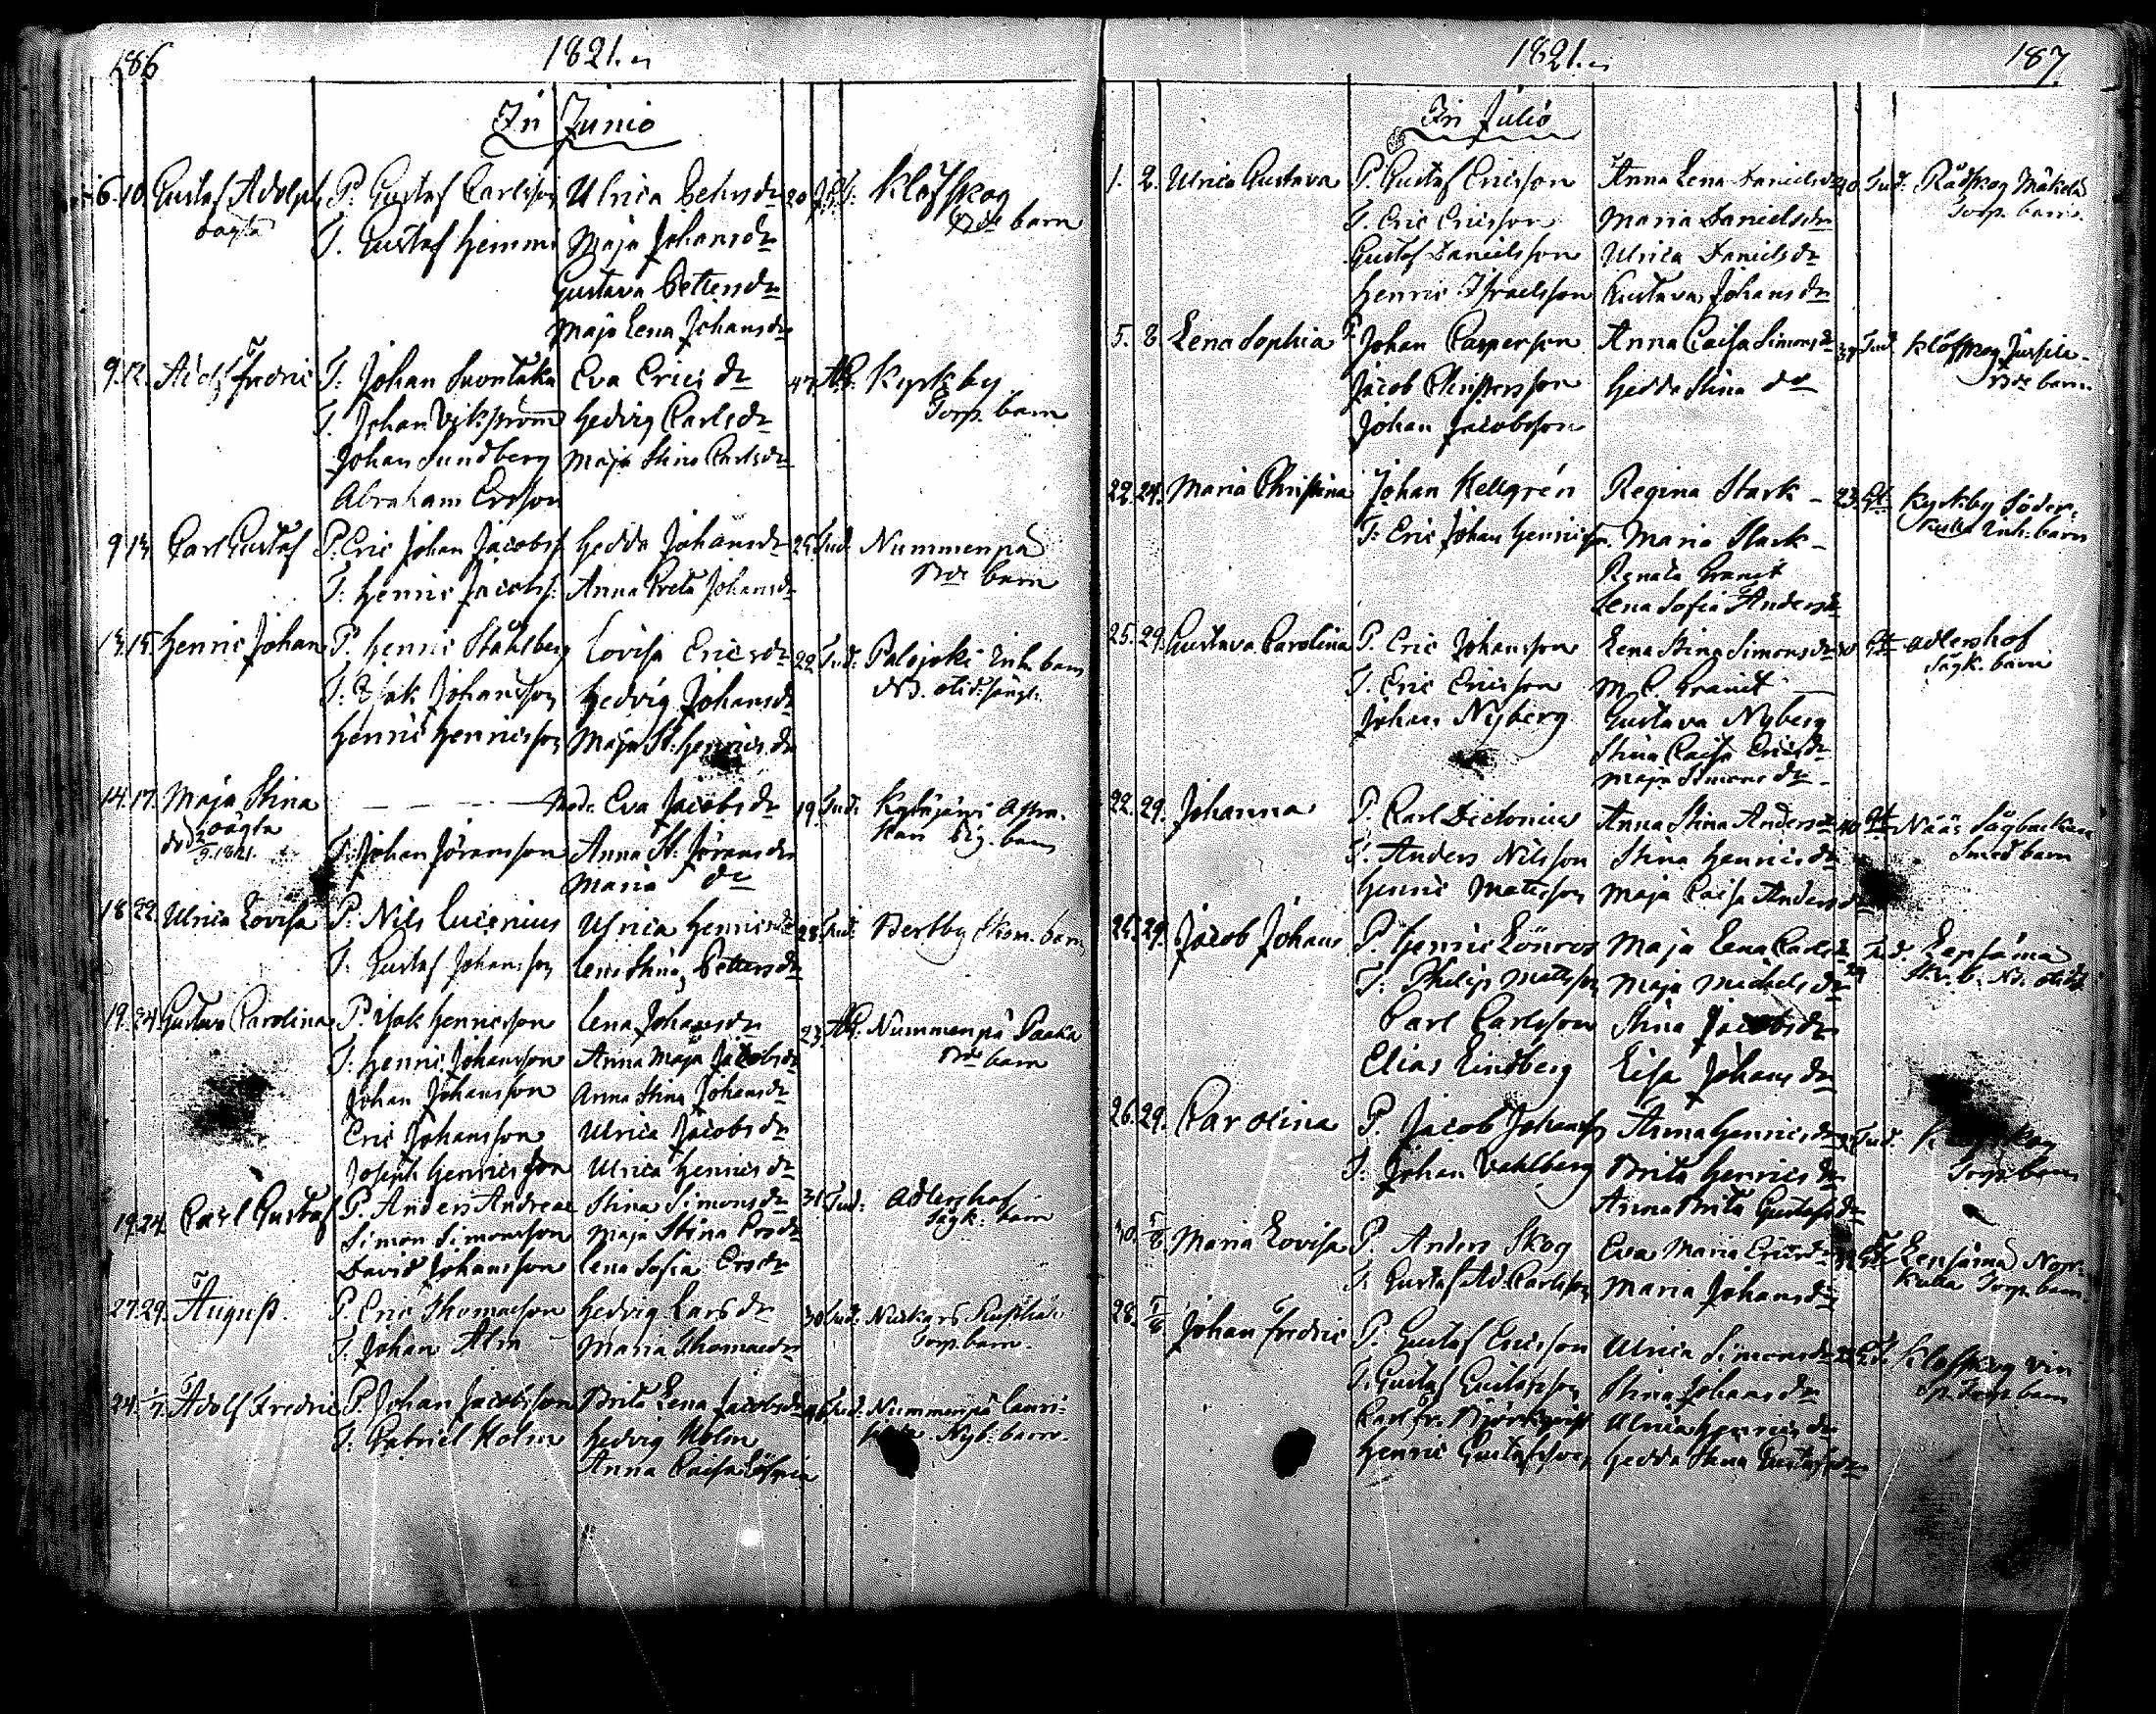 186
1821.
In Junio
6. 10. Gustaf Adolph P. Gustaf Carlsson Ulrica Petersdr 20 Klöfskog
oägta T. Gustaf Hemm Maja Johansdr Bde barn
Gustava Pettersdr
Maja Lena Johansdr
9. 12. Adolf Fredric T. Johan Suontaka Eva Ericsdr 47. Kyrkby
T. Johan Vikström Hedvig Carlsdr Torp. barn
Johan Sundberg Maja Stina Carlsdr
Abraham Ersson
9. 13. Carl Gustaf P. Eric Johan Jacobss. Hedda Johansdr 25. Tud. Nummenpä
T. Henric Jacobss. Anna Greta Johansdr Bde barn
13. 15. Henric Johan P. Henric Ståhlberg Lovisa Ericsdr 22. Tud: Palojoki Inh. barn
T: Isak Johansson Hedvig Johansdr NB. otid. sängl.
Henric Henricsson Maja St. Henricsdr
14. 17. Maja Stina — — — Mod. Eva Jacobsdr 19. Tud:
oägta
1821. T. Johan Jöransson Anna St. Jöransdr barn
Maria dr
18. 22. Ulrica Lovisa P. Nils Lucenius Ulrica Henricsdr 28. Tud. Bertby barn
T. Gustaf Johansson Lena Stina Pettersdr
19. 24. Gustava Carolina P. Isak Henricsson Lena Johansdr 23. Nummenpä Paaka
T. Henric Johansson Anna Maja Jacobsdr Bde barn
Johan Johansson Anna Stina Johansdr
Eric Johansson Ulrica Jacobsdr
Joseph Henricsson Ulrica Henricsdr
19. 24. Carl Gustaf P. Anders Andreae Stina Simonsdr 31. Tud: Adlershof
Simon Simonsson Maja Stina Ersdr Sågk. barn
David Johansson Lena Sofia Ersdr
27. 29. August. P. Eric Thomasson Hedvig Larsdr 30 Tud:
T. Johan Alm Maria Thomasdr Torp. barn.
24. 1/7. Adolf Fredric P. Johan Jacobsson Brita Lena Jacobsdr 40 Tud: Nummenpä Lauri-
T. Gabriel Holm Hedvig Holm barn.
Anna Caisa
1821.
187
In Julio
1. 2. Ulrica Gustava P. Gustaf Ericsson Anna Lena Danielsdr 40. Tud. Rödskog Mäkelä
T. Eric Ericsson Maria Danielsdr Torp. barn.
Gustaf Danielsson Ulrica Danielsdr
Henric Israelsson Gustava Johansdr
5. 8 Lena Sophia P Johan Casperson Anna Caisa Simonsdr Tud Klöfskog Jussila-
Jacob Christersson Hedda Stina dr Bde barn.
Johan Jacobsson
22. 24. Maria Christina Johan Kellgrén Regina Stark — 23. Kyrkby Söder-
T: Eric Johan Henricsson. Maria Stark — kulla Inh. barn
Renata Granit
Lena Sofia Andersdr
25. 29. Gustava Carolina P. Eric Johansson Lena Stina Simonsdr 30 Adlershof
T. Eric Ericsson M. C. Granit Sågk. barn
Johan Nyberg Gustava Nyberg
Stina Caisa Ericsdr
Maja Simonsdr
22. 29. Johanna P. Carl Dictonius Anna Stina Andersdr 40 Nääs Sågbacken
T. Anders Nilsson Stina Henricsdr Smed barn
Henric Matsson Maja Caisa Andersdr
25. 29. Jacob Johan P. Henric Lönros Maja Lena Carlsdr 24 Lepsämä
T: Philip Mattsson Maja Michelsdr
Carl Carlsson Stina Jacobsdr
Elias Lindberg Lisa Johansdr
26. 29. Carolina P. Jacob Johansson Anna Henricsdr Tud.
T. Johan Vahlberg Brita Henricsdr Torp. barn
Anna Brita Gustafsdr
30. 5/8 Maria Lovisa P. Anders Skog Eva Maria Ericsdr Lepsämä Norr-
T. Gustaf Ad. Carlsson Maria Johansdr kulla Torp. barn.
28. 5/8 Johan Fredric P. Gustaf Ericsson Ulrica Simonsdr Klöfskog
T. Gustaf Gustafsson Stina Johansdr Torp. barn
Carl Fr. Björkqvist Ulrica Henricsdr
Henric Gustafsson Hedda Stina Gustafsdr